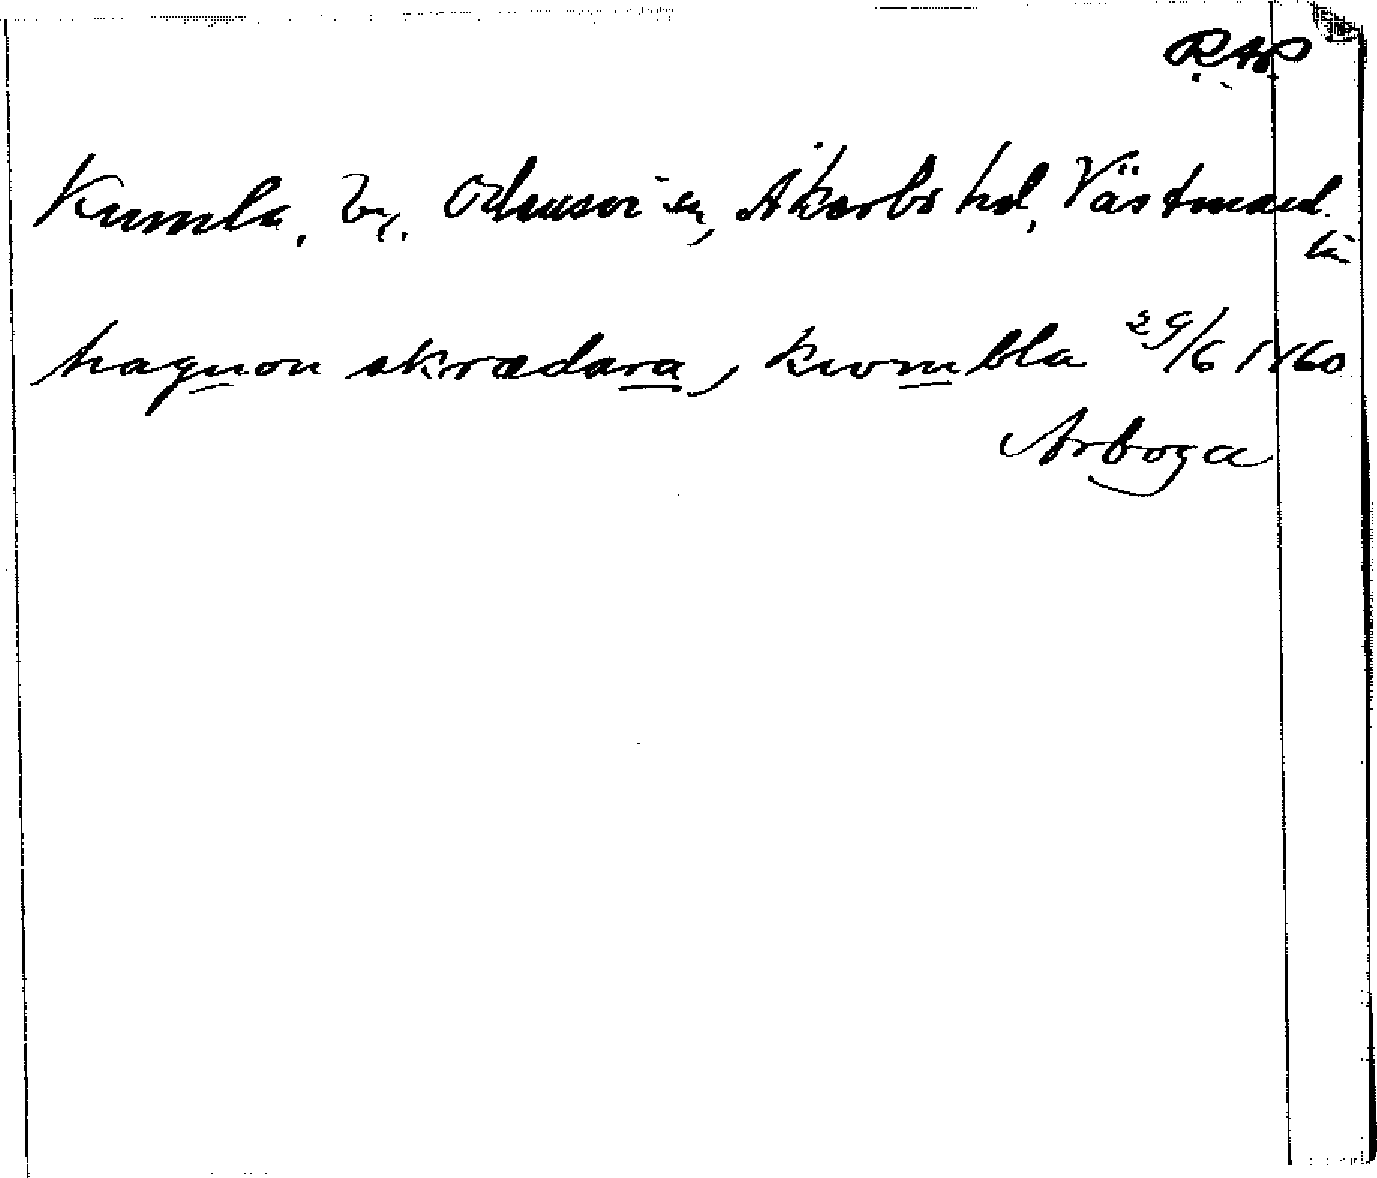 RAP
Kumla, by, Odensvi sn, Åkerbo hd, Västmanl.
län
haquon skrædara, kwmbla 29/6 1460
Arboga